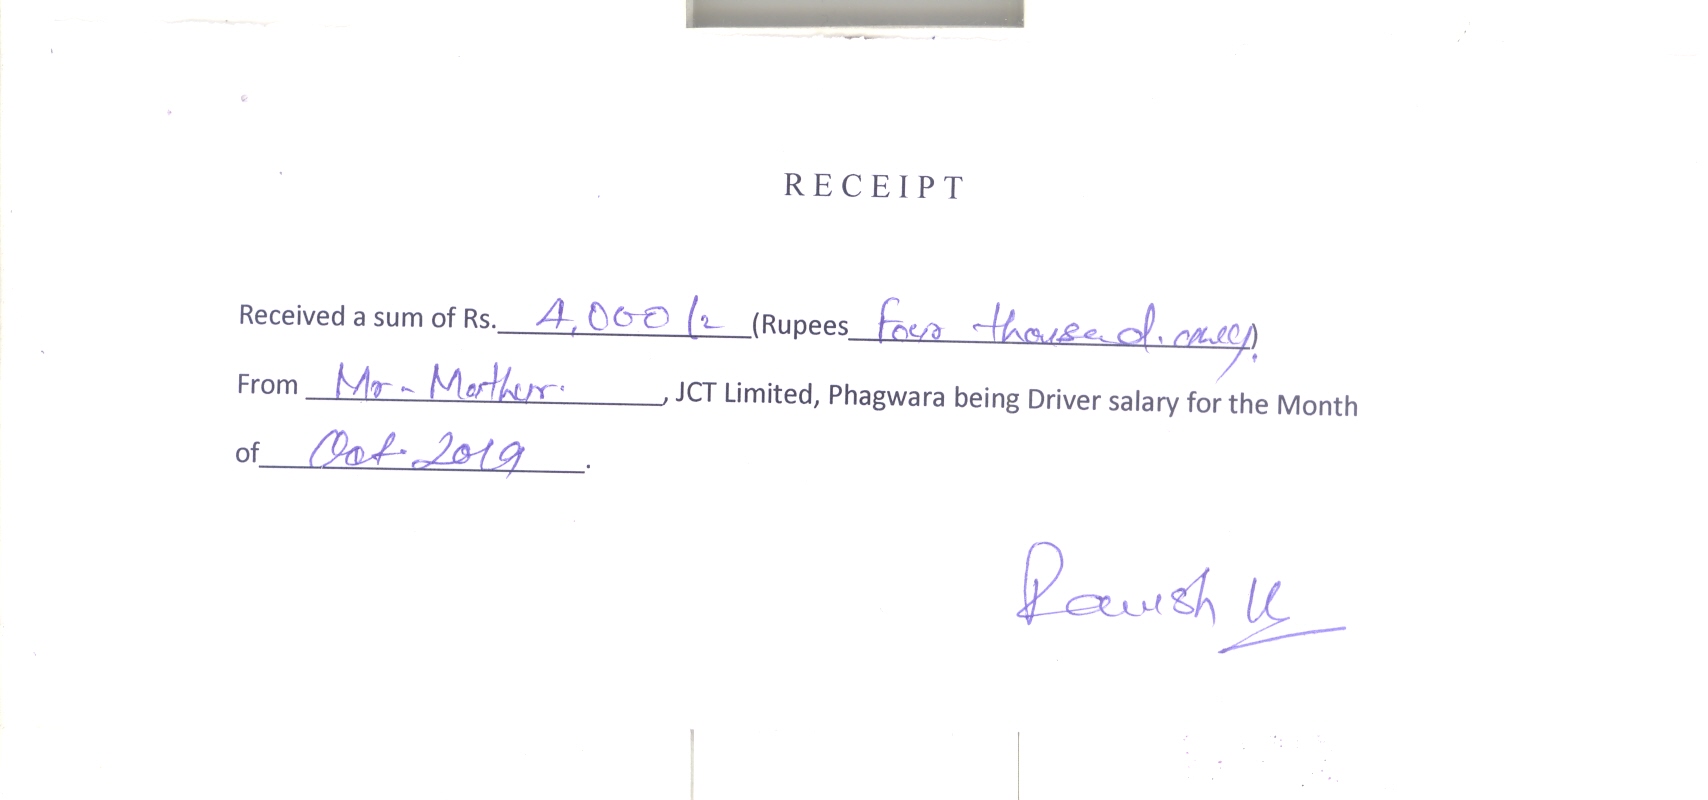 RECEIPT
Received a sum of Rs. 4,000/- (Rupees Four thousand. only)
From Mr. Mathur. , JCT Limited, Phagwara being Driver salary for the Month
of Oct. 2019 .
Ravish K